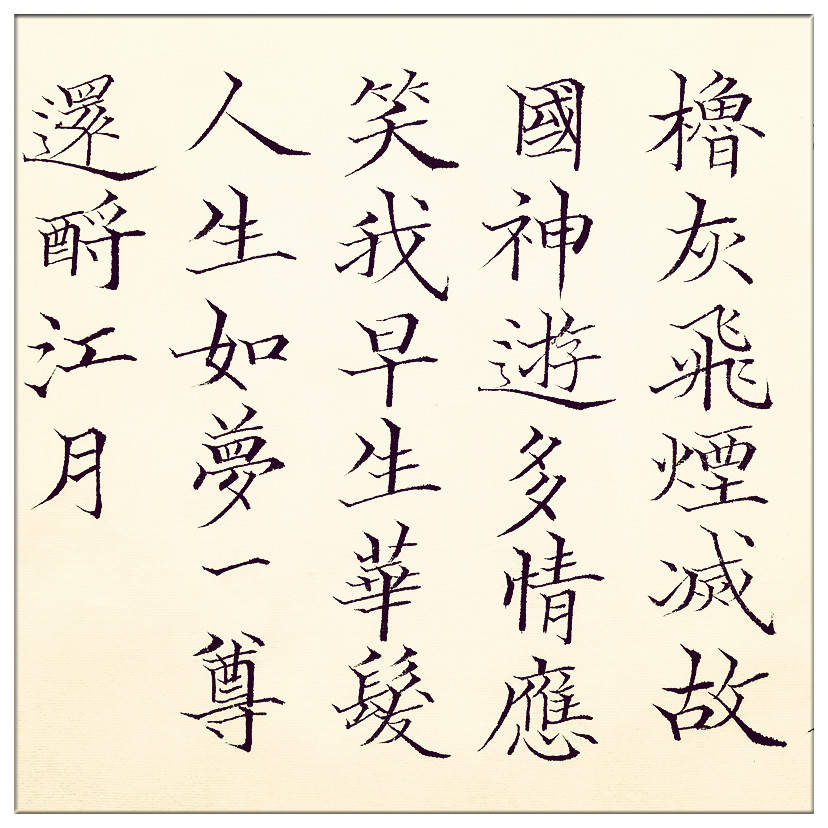 櫓灰飛煙滅故
國神遊多情應
笑我早生華髮
人生如夢一尊
還酹江月